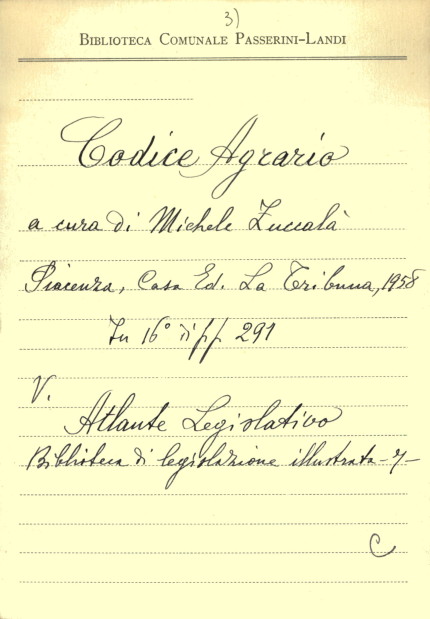 3)
BIBLIOTECA COMUNALE PASSERINI-LANDI
Codice Agrario
a cura di Michele Zuccalà
Piacenza, Casa Ed. La Tribuna, 1958
In 16° di pp. 291
V.
Atlante Legislativo
Biblioteca di legislazione illustrata - 7 -
C